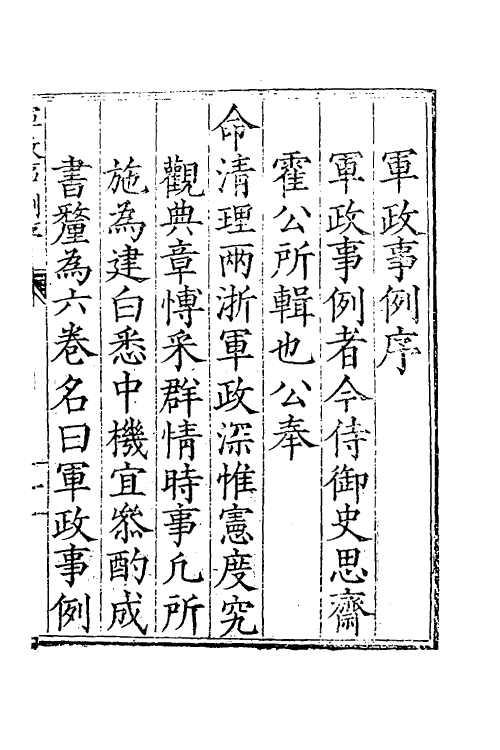 軍政事例序
軍政事例者今侍御史思齋
霍公所輯也公奉
命清理兩浙軍政深惟憲度究
觀典章愽采群情時事凡所
施為建白悉中機宜叅酌成
書釐為六卷名曰軍政事例